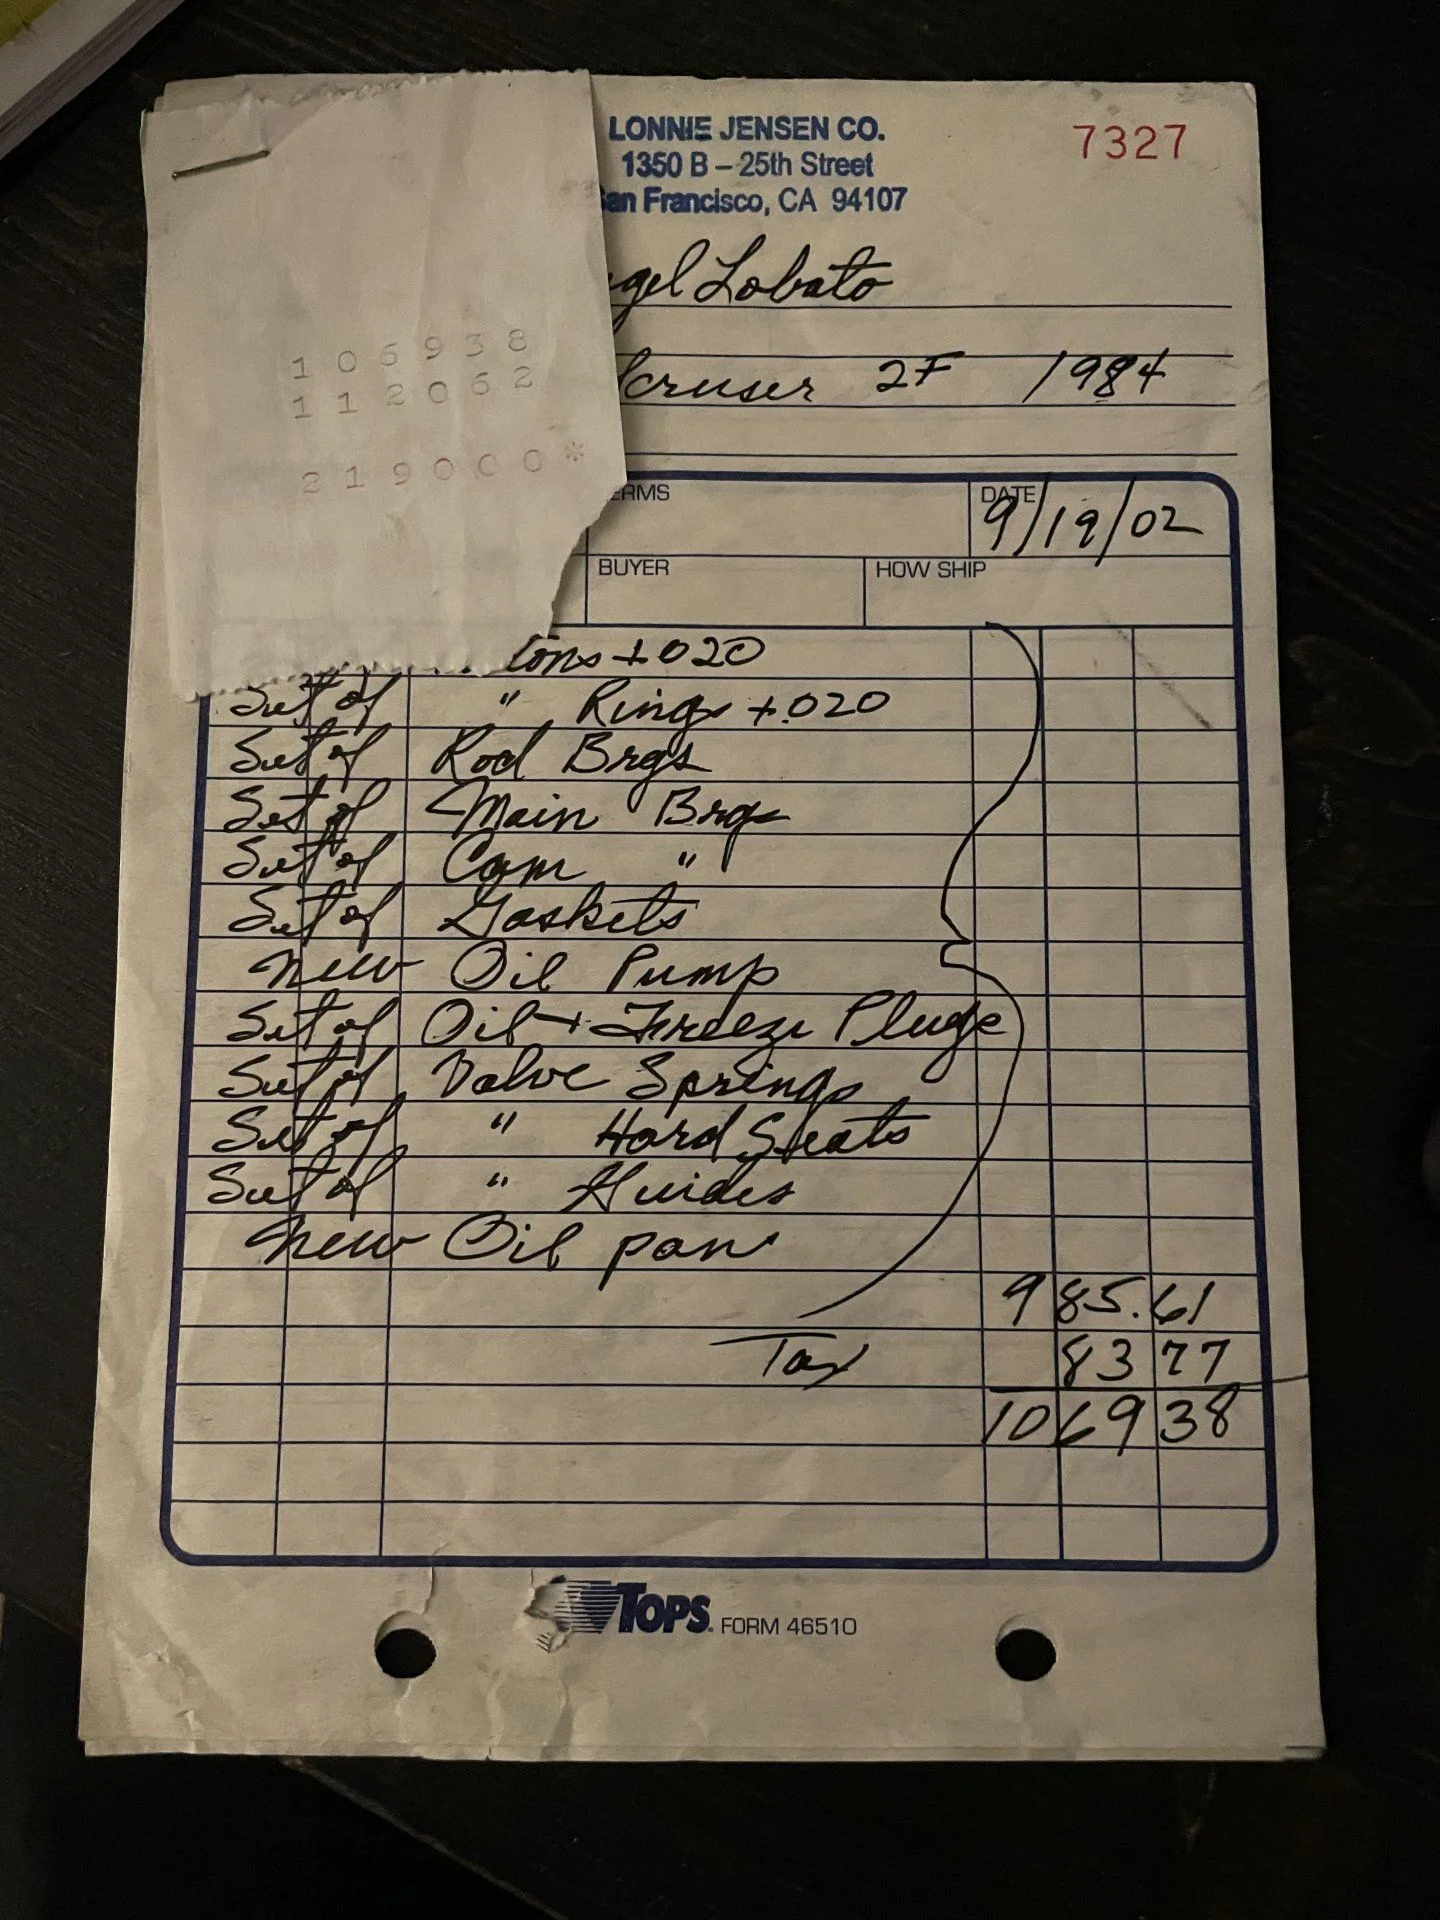 LONNIE JENSEN CO.
7327
1350 B – 25th Street
an Francisco, CA 94107
gel Lobato
cruser 2F 1984
106938
112062
219000*
ERMS
DATE
9/19/02
BUYER
HOW SHIP
tons +020
Set of " Rings +.020
Set of Rod Brgs
Set of Main Brgs
Set of Cam "
Set of Gaskets
New Oil Pump
Set of Oil + Freeze Plugs
Set of Valve Springs
Set of " Hard Seats
Set of " Guides
New Oil pan
985.61
Tax 83 77
1069 38
TOPS. FORM 46510